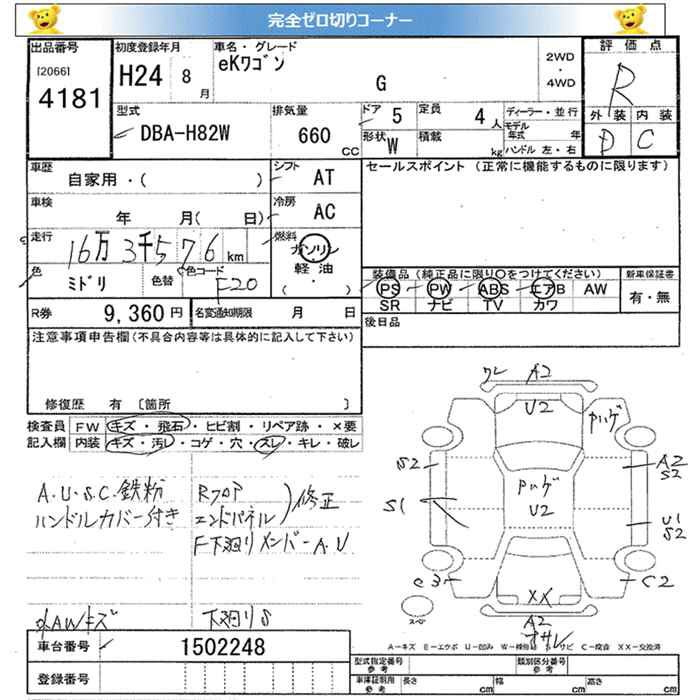 完全ゼロ切りコーナー
出品番号
[2066]
4181
初度登録年月
H24 8 月
車名・グレード
eKワゴン
G
2WD
・
4WD
評価点
R
外装 内装
D C
型式
DBA-H82W
排気量
660 CC
ドア 5
定員 4 人
形状 W
積載 kg
ディーラー・並行
モデル年式 年
ハンドル 左・右
車歴
自家用・( )
シフト AT
セールスポイント (正常に機能するものに限ります)
車検
年 月( 日)
冷房 AC
走行
16万3千576 km
燃料
ガソリン
軽油
( ・ )
色
ミドリ
色替
色コード
F20
装備品 (純正品に限り○をつけてください)
新車保証書
PS PW ABS エアB AW
SR ナビ TV カワ
有・無
R券 9,360 円
名変通知期限 月 日
後日品
注意事項申告欄 (不具合内容等は具体的に記入して下さい)
修復歴 有 〔箇所 〕
検査員 FW キズ・飛石・ヒビ割・リペア跡・×要
記入欄 内装 キズ・汚レ・コゲ・穴・スレ・キレ・破レ
A.U.S.C.鉄粉
ハンドルカバー付き
Rフロア
エンドパネル
修正
F下廻りメンバーA.U
AWキズ
下廻りS
ワレ A2
U2
Pハゲ
Pハゲ
U2
S2
S1
A2
S2
U1
S2
C2
XX
スペア
A2
A－キズ E－エクボ U－凹み W－補修跡 S－サビ C－腐食 XX－交換済
車台番号
1502248
登録番号
型式指定番号
参考
類別区分番号
参考
車庫証明用
参考
長さ cm 幅 cm 高さ cm